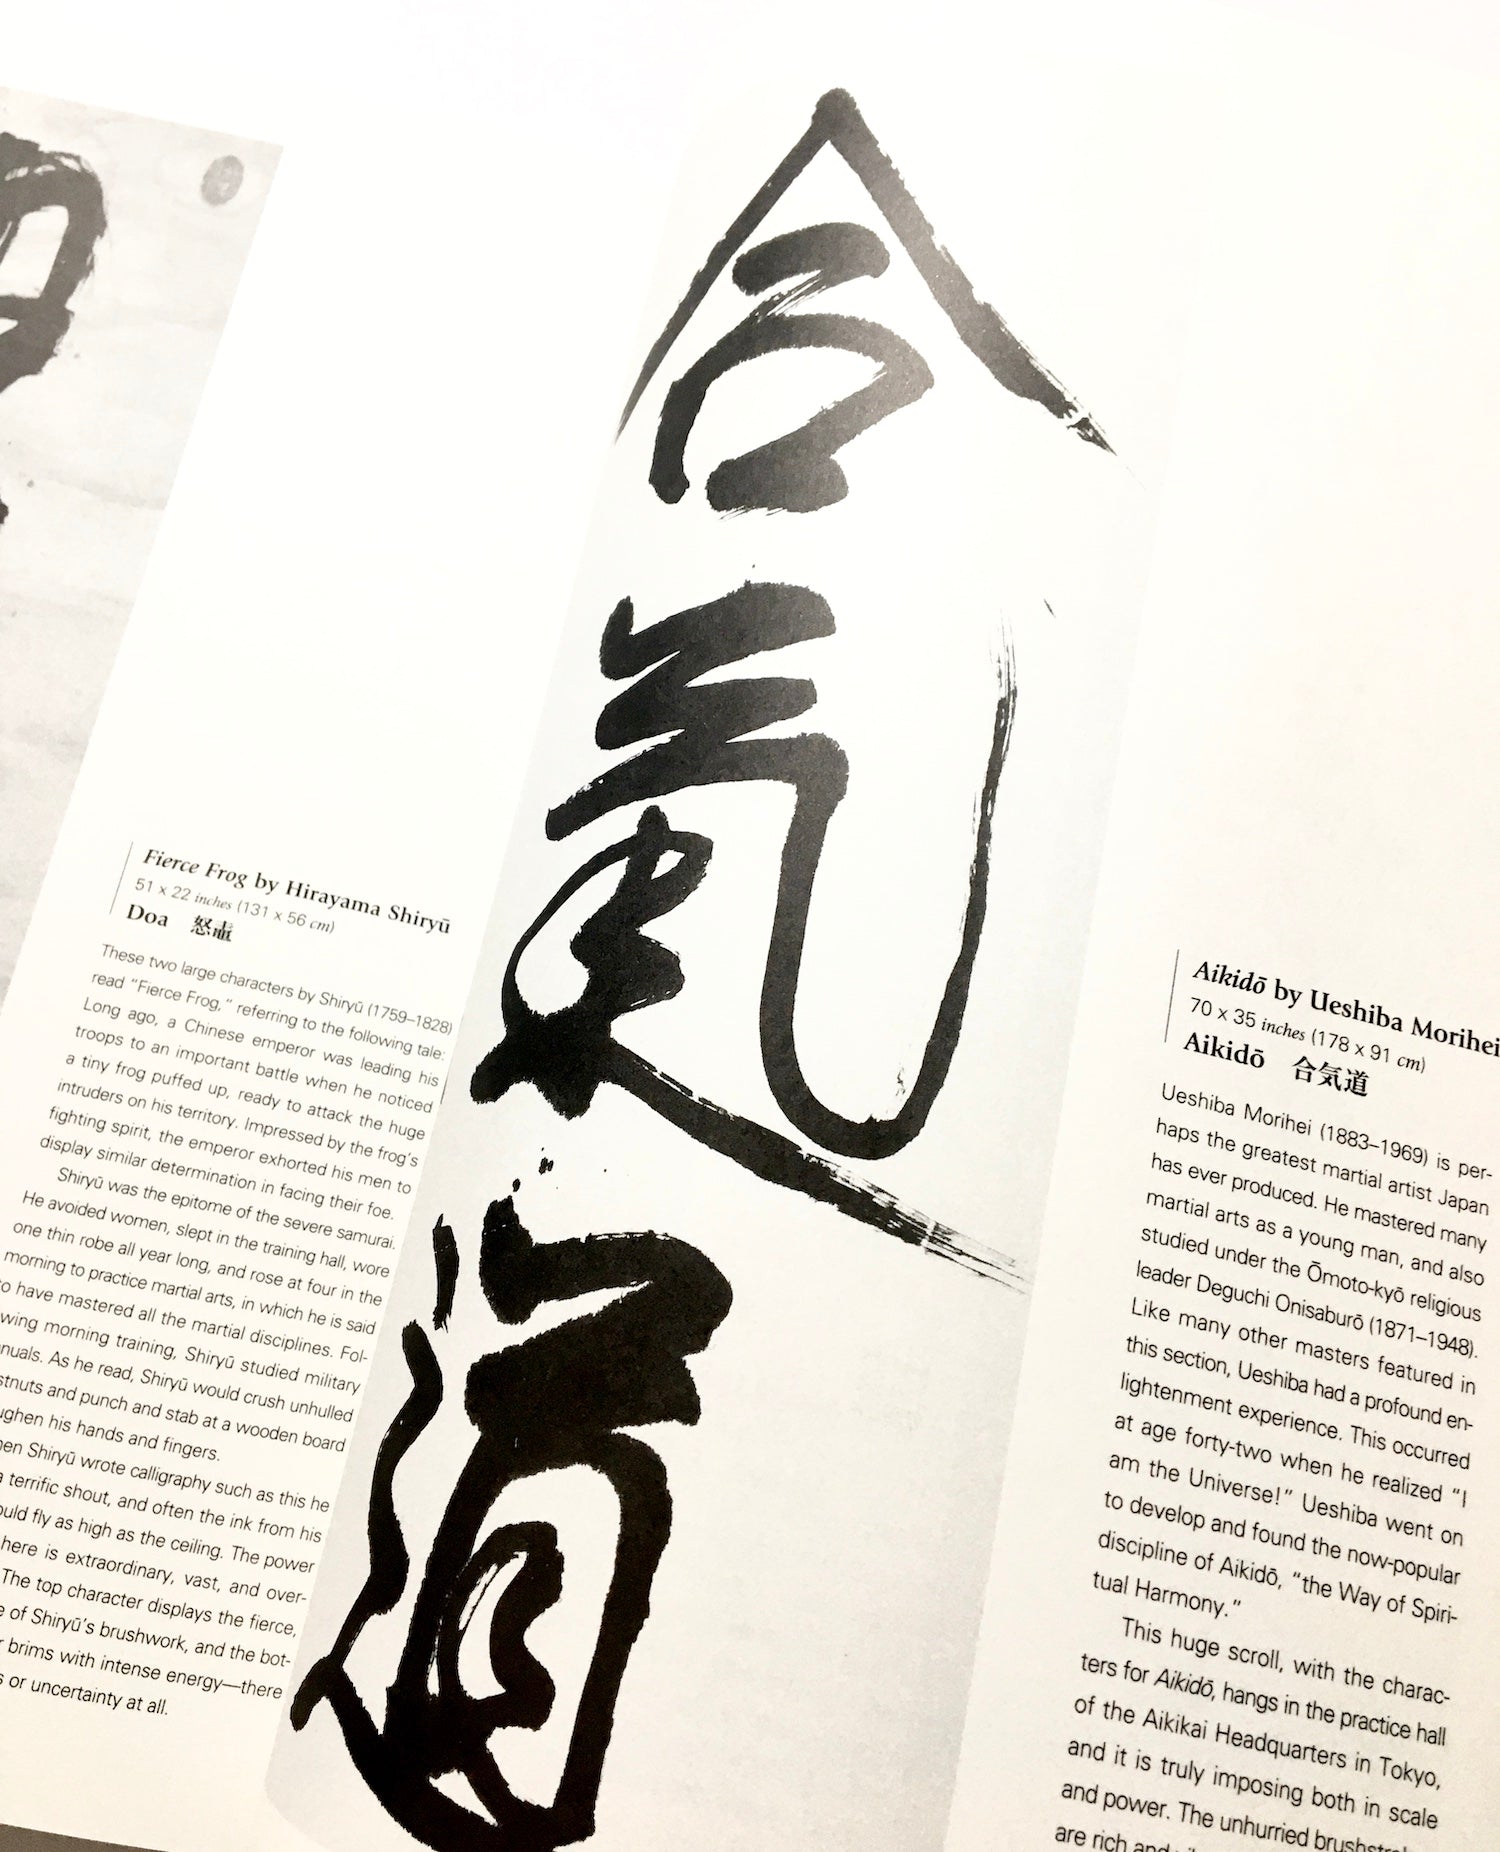 Fierce Frog by Hirayama Shiryū
51 x 22 inches (131 x 56 cm)
Doa 怒
These two large characters by Shiryū (1759–1828)
read "Fierce Frog," referring to the following tale:
Long ago, a Chinese emperor was leading his
troops to an important battle when he noticed
a tiny frog puffed up, ready to attack the huge
intruders on his territory. Impressed by the frog's
fighting spirit, the emperor exhorted his men to
display similar determination in facing their foe.
Shiryū was the epitome of the severe samurai.
He avoided women, slept in the training hall, wore
one thin robe all year long, and rose at four in the
morning to practice martial arts, in which he is said
to have mastered all the martial disciplines. Fol-
wing morning training, Shiryū studied military
nuals. As he read, Shiryū would crush unhulled
stnuts and punch and stab at a wooden board
ughen his hands and fingers.
en Shiryū wrote calligraphy such as this he
a terrific shout, and often the ink from his
ould fly as high as the ceiling. The power
here is extraordinary, vast, and over-
The top character displays the fierce,
e of Shiryū's brushwork, and the bot-
r brims with intense energy—there
s or uncertainty at all.
合
氣
道
Aikidō by Ueshiba Morihei
70 x 35 inches (178 x 91 cm)
Aikidō 合気道
Ueshiba Morihei (1883–1969) is per-
haps the greatest martial artist Japan
has ever produced. He mastered many
martial arts as a young man, and also
studied under the Ōmoto-kyō religious
leader Deguchi Onisaburō (1871–1948).
Like many other masters featured in
this section, Ueshiba had a profound en-
lightenment experience. This occurred
at age forty-two when he realized "I
am the Universe!" Ueshiba went on
to develop and found the now-popular
discipline of Aikidō, "the Way of Spiri-
tual Harmony."
This huge scroll, with the charac-
ters for Aikidō, hangs in the practice hall
of the Aikikai Headquarters in Tokyo,
and it is truly imposing both in scale
and power. The unhurried
are rich and